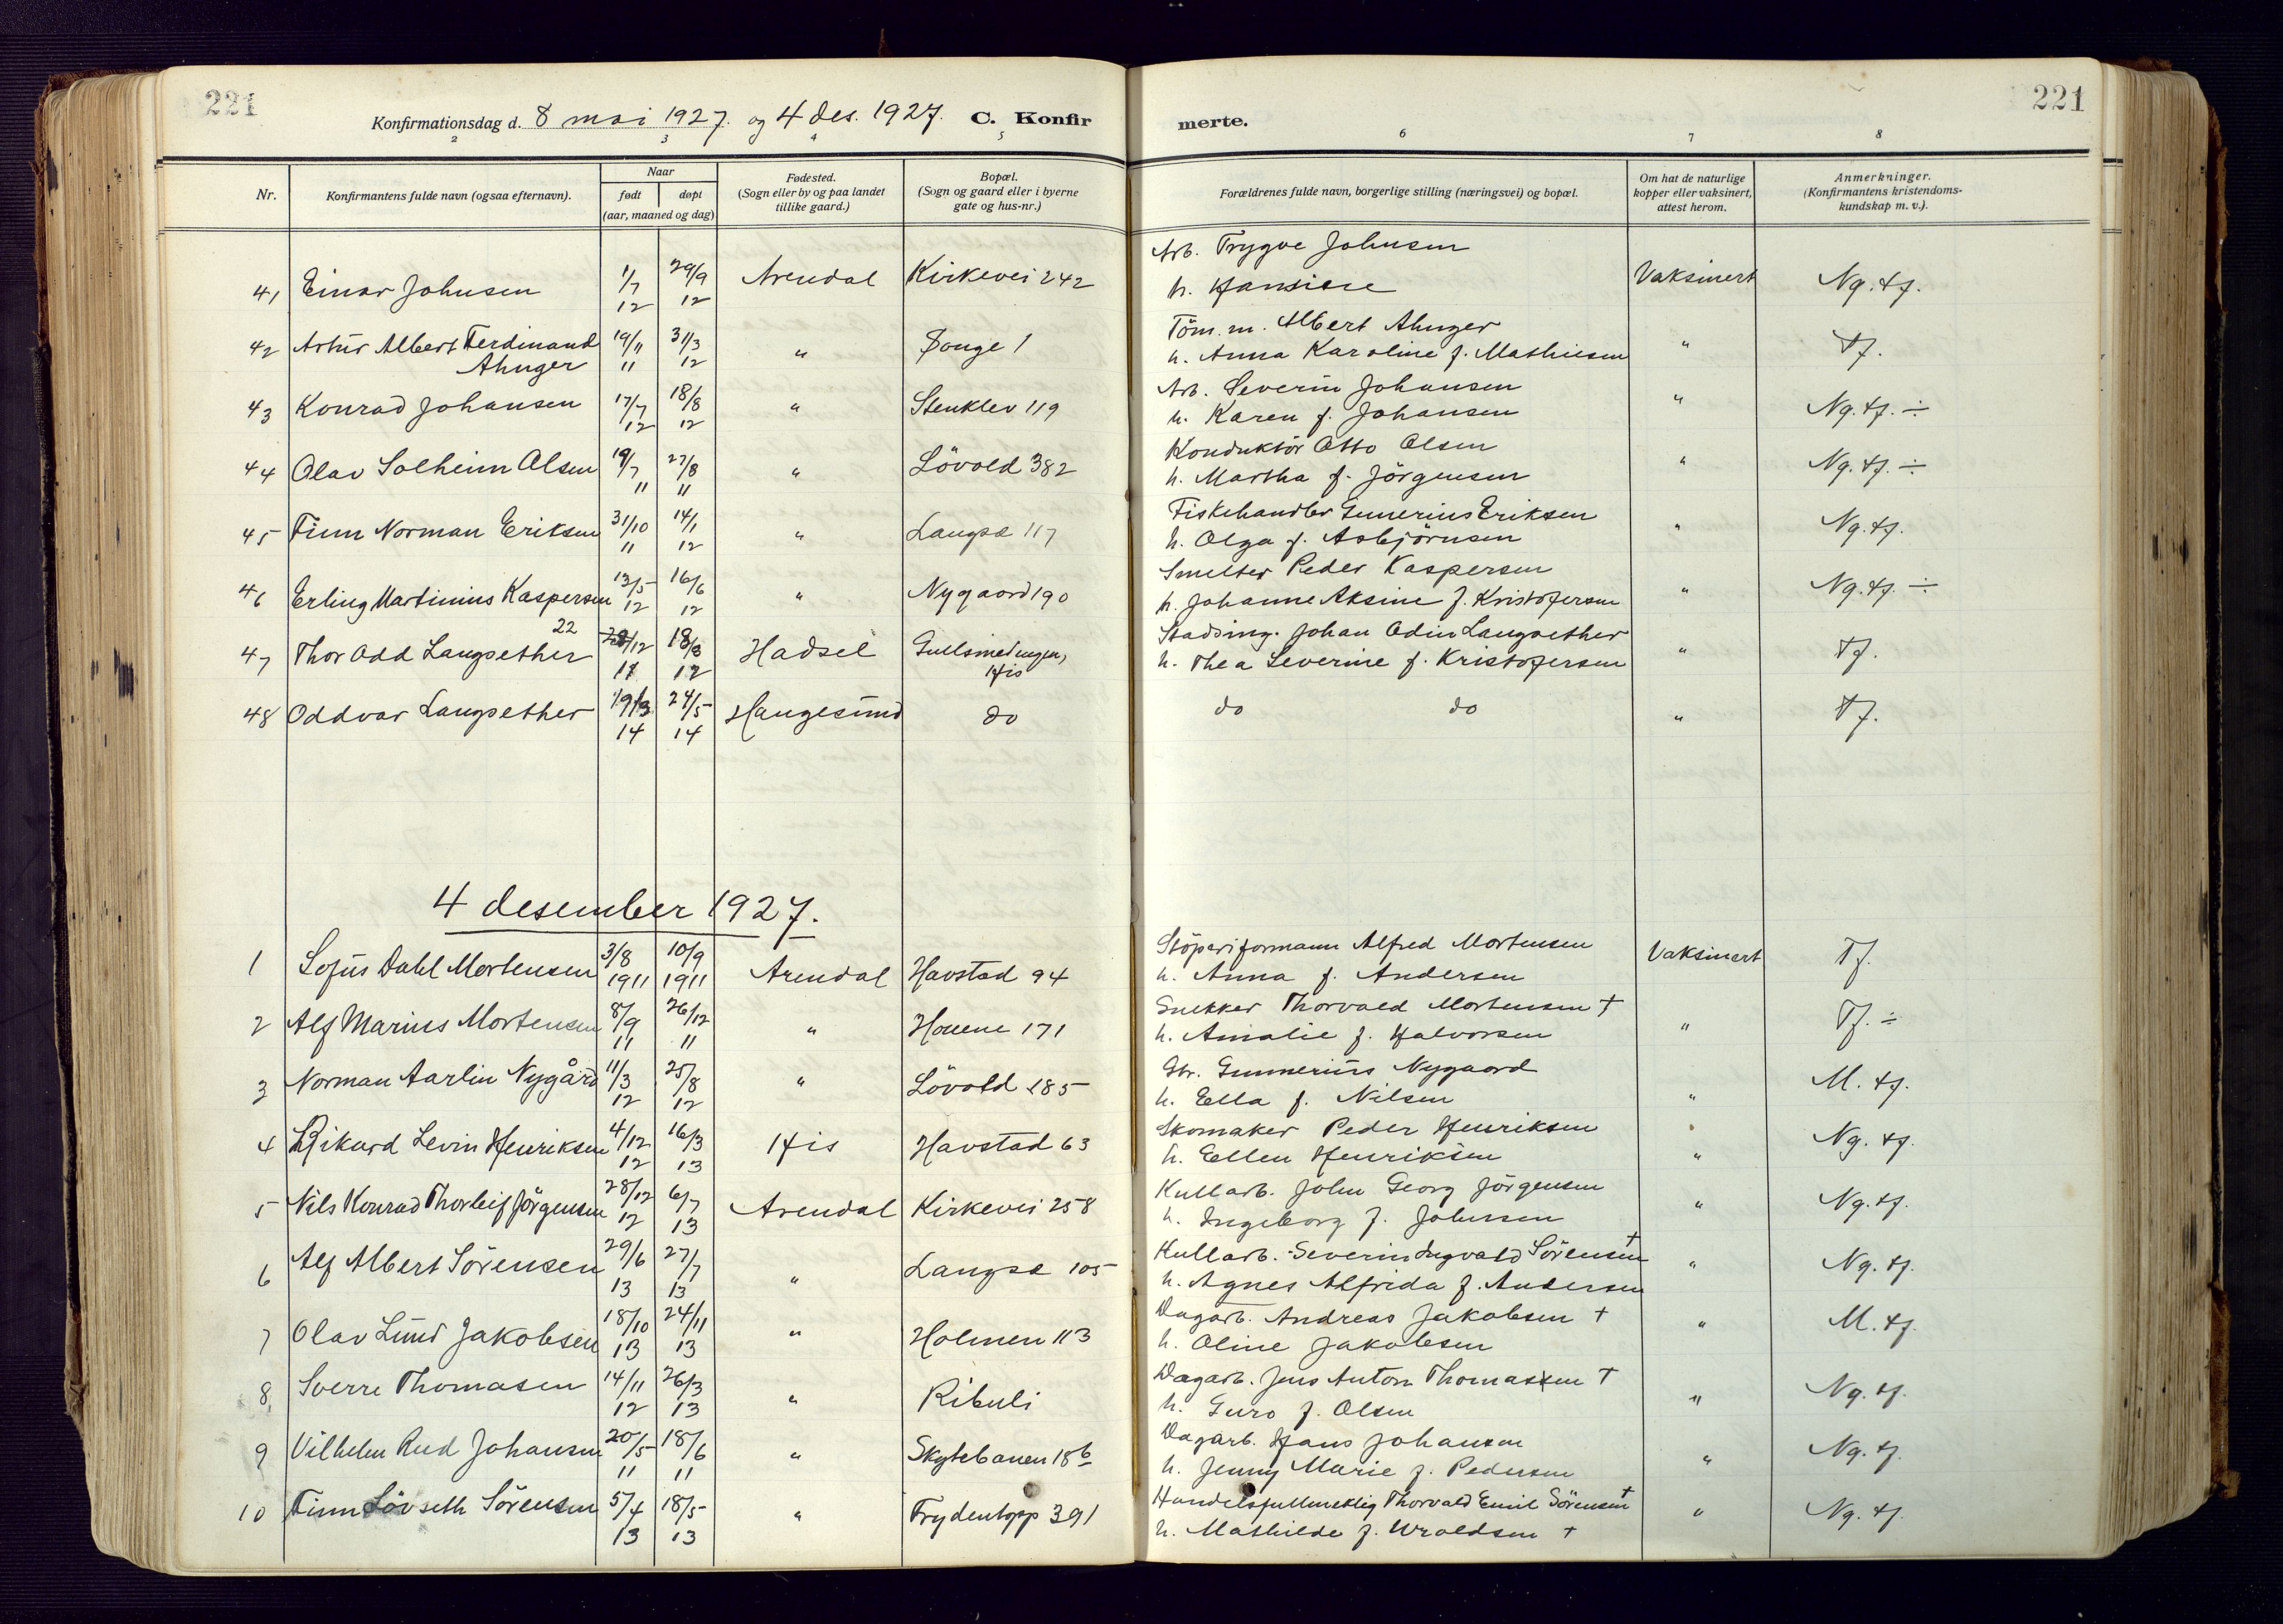 221
Konfirmationsdag d. 8 mai 1927. og 4 des. 1927. C. Konfir
merte.
221
2 3 4 5 6 7 8
Nr.
Konfirmantens fulde navn (ogsaa efternavn).
Naar
født døpt
(aar, maaned og dag)
Fødested.
(Sogn eller by og paa landet
tillike gaard.)
Bopæl.
(Sogn og gaard eller i byerne
gate og hus-nr.)
Forældrenes fulde navn, borgerlige stilling (næringsvei) og bopæl.
Om hat de naturlige
kopper eller vaksinert,
attest herom.
Anmerkninger.
(Konfirmantens kristendoms-
kundskap m. v.).
Arb. Trygve Johnsen
41 Einar Johnsen 1/7 12 29/9 12 Arendal Kirkevei 242 h. Hansine Vaksinert Ng. tf.
Töm. m. Albert Ahnger
42 Artur Albert Ferdinand 19/11 11 31/3 12 " Songe 1 h. Anna Karoline f. Mathiesen " tf.
Ahnger
Arb. Severin Johansen
43 Konrad Johansen 17/7 12 18/8 12 " Stenklev 119 h. Karen f. Johansen " Ng. tf. ÷
Konduktör Otto Olsen
44 Olav Solheim Olsen 19/7 11 27/8 11 " Lövold 382 h. Martha f. Jörgensen " Ng. tf. ÷
Fiskehandler Gunerius Eriksen
45 Finn Norman Eriksen 31/10 11 14/1 12 " Langsæ 117 h. Olga f. Asbjörnsen " Ng. tf.
Smelter Peder Kaspersen
46 Erling Martinius Kaspersen 13/5 12 16/6 12 " Nygaard 190 h. Johanne Aksine f. Kristofersen " Ng. tf. ÷
22
Stadsing. Johan Odin Langsether
47 Thor Odd Langsether 28/12 11 18/8 12 Hadsel Gullsmedengen, h. Thea Severine f. Kristofersen " tf.
His
48 Oddvar Langsether 19/3 14 24/5 14 Haugesund do do do " tf.
4 desember 1927.
Stöperiformann Alfred Mortensen
1 Sofus Dahl Mortensen 3/8 1911 10/9 1911 Arendal Havstad 94 h. Anna f. Andersen Vaksinert Tf.
Snekker Thorvald Mortensen †
2 Alf Marius Mortensen 8/9 11 26/12 11 " Houene 171 h. Amalie f. Halvorsen " Tf. ÷
Gbr. Gunnerius Nygaard
3 Norman Aarlin Nygård 11/3 12 25/8 12 " Lövold 185 h. Ella f. Nilsen " M. tf.
Skomaker Peder Henriksen
4 Rikard Levin Henriksen 4/12 12 16/3 13 His Havstad 63 h. Ellen Henriksen " Ng. tf.
Kullarb. John Georg Jörgensen
5 Nils Konrad Thorleif Jörgensen 28/12 12 6/7 13 Arendal Kirkevei 258 h. Ingeborg f. Johnsen " Ng. tf.
Kullarb. Severin Ingvald Sörensen †
6 Alf Albert Sörensen 29/6 13 27/7 13 " Langsæ 105 h. Agnes Alfrida f. Andersen " Ng. tf.
Dagarb. Andreas Jakobsen †
7 Olav Lund Jakobsen 18/10 13 24/11 13 " Holmen 113 h. Oline Jakobsen " M. tf.
Dagarb. Jens Anton Thomassen †
8 Sverre Thomasen 14/11 12 26/3 13 " Ribuli h. Guro f. Olsen " Ng. tf.
Dagarb. Hans Johansen
9 Vilhelm Rud Johansen 20/5 11 18/6 11 " Skytebanen 18b h. Jenny Marie f. Pedersen " Ng. tf.
Handelsfullmektig Thorvald Emil Sörensen †
10 Finn Lövseth Sörensen 5/4 13 18/5 13 " Frydentopp 391 h. Mathilde f. Wroldsen † " Ng. tf.